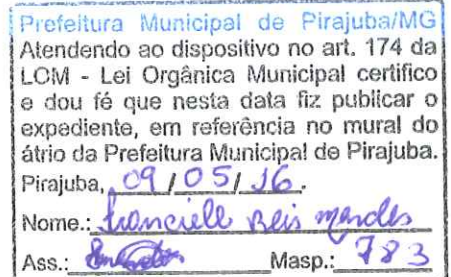 Prefeitura Municipal de Pirajuba/MG
Atendendo ao dispositivo no art. 174 da
LOM - Lei Orgânica Municipal certifico
e dou fé que nesta data fiz publicar o
expediente, em referência no mural do
átrio da Prefeitura Municipal de Pirajuba.
Pirajuba, 09 / 05 / 16.
Nome.: Franciele Reis Mendes
Ass.: Masp.: 783